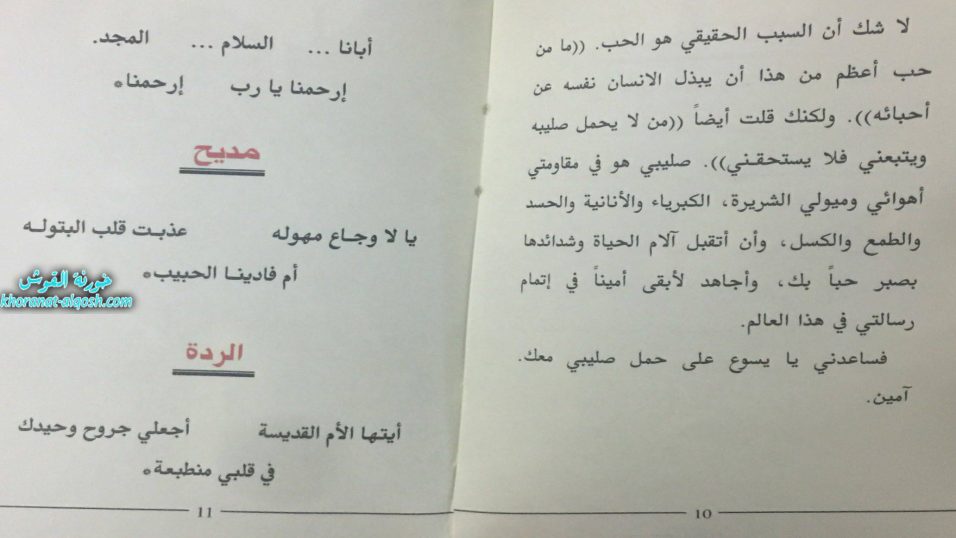 لا شك أن السبب الحقيقي هو الحب. ((ما من
حب أعظم من هذا أن يبذل الانسان نفسه عن
أحبائه)). ولكنك قلت أيضاً ((من لا يحمل صليبه
ويتبعني فلا يستحقـني)). صليبي هو في مقاومتي
أهوائي وميولي الشريرة، الكبرياء والأنانية والحسد
والطمع والكسل، وأن أتقبل آلام الحياة وشدائدها
بصبر حباً بك، وأجاهد لأبقى أميناً في إتمام
رسالتي في هذا العالم.
فساعدني يا يسوع على حمل صليبي معك.
آمين.
10
أبانا ... السلام ... المجد.
إرحمنا يا رب إرحمنا*
مديح
يا لا وجـاع مهوله عذبـت قلب البتولـه
أم فادينـا الحبيب*
الردة
أيتـها الأم القديسة أجعلي جروح وحيدك
في قلبي منطبعة*
11
خورنة القوش
khoranat-alqosh.com